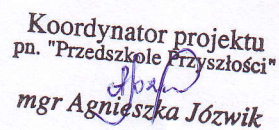 Koordynator projektu
pn. "Przedszkole Przyszłości"
mgr Agnieszka Józwik